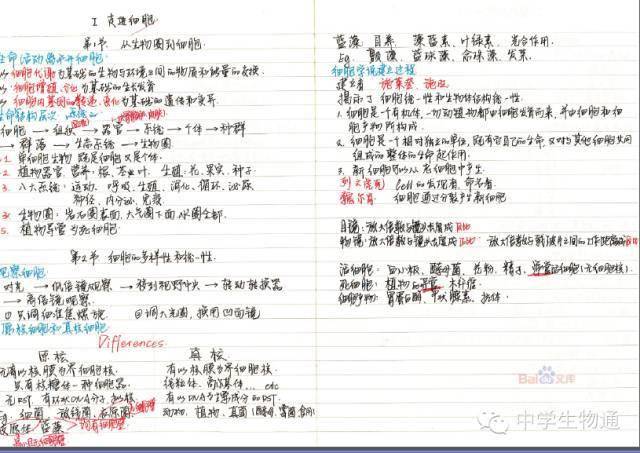 I 走近细胞
第1节 从生物圈到细胞
生命活动离不开细胞
以细胞代谢为基础的生物与环境之间的物质和能量的交换
以细胞增殖、分化为基础的生长发育
以细胞内基因的传递、变化为基础的遗传和变异
生命结构层次
细胞 → 组织 → 器官 → 系统 → 个体 → 种群
→ 群落 → 生态系统 → 生物圈
1. 单细胞生物 既是细胞又是个体
2. 植物器官 营养:根、茎、叶 生殖:花、果实、种子
3. 八大系统:运动、呼吸、生殖、消化、循环、泌尿
神经、内分泌、免疫
生物圈:岩石圈表面,大气圈下面,水圈全部
5. 植物导管为死细胞
第2节 细胞的多样性和统一性
观察细胞
对光 → 低倍镜观察 → 移到视野中央 → 转动转换器
→ 高倍镜观察
①只调细准焦螺旋 ②调大光圈,换用凹面镜
原核细胞和真核细胞
Differences
原核 真核
无有以核膜为界细胞核 有以核膜为界细胞核
只有核糖体一种细胞器 线粒体、高尔基体…etc
动物、植物、真菌
蓝藻
蓝藻 目养 藻蓝素、叶绿素 光合作用
eg. 颤藻 蓝球藻 念珠藻 发菜
细胞学说建立过程
建立者 施莱登、施旺
揭示了细胞统一性和生物体结构统一性
1. 细胞是一个有机体,一切动植物都由细胞发育而来,并由细胞和细
胞产物所构成
2. 细胞是一个相对独立的单位,既有它自己的生命,又对与其他细胞共同
组成的整体的生命起作用
3. 新细胞可以从老细胞中产生
列文虎克 Cell的发现者、命名者
魏尔肖 细胞通过分裂产生新细胞
目镜:放大倍数与镜头长度成反比
物镜:放大倍数与镜头长度成正比 放大倍数与载玻片之间的工作距离
活细胞:白细胞、酵母菌、花粉、精子
死细胞:植物的导管、木纤维
细胞产物:胃蛋白酶、甲状腺素、抗体
Baidu文库
中学生物通